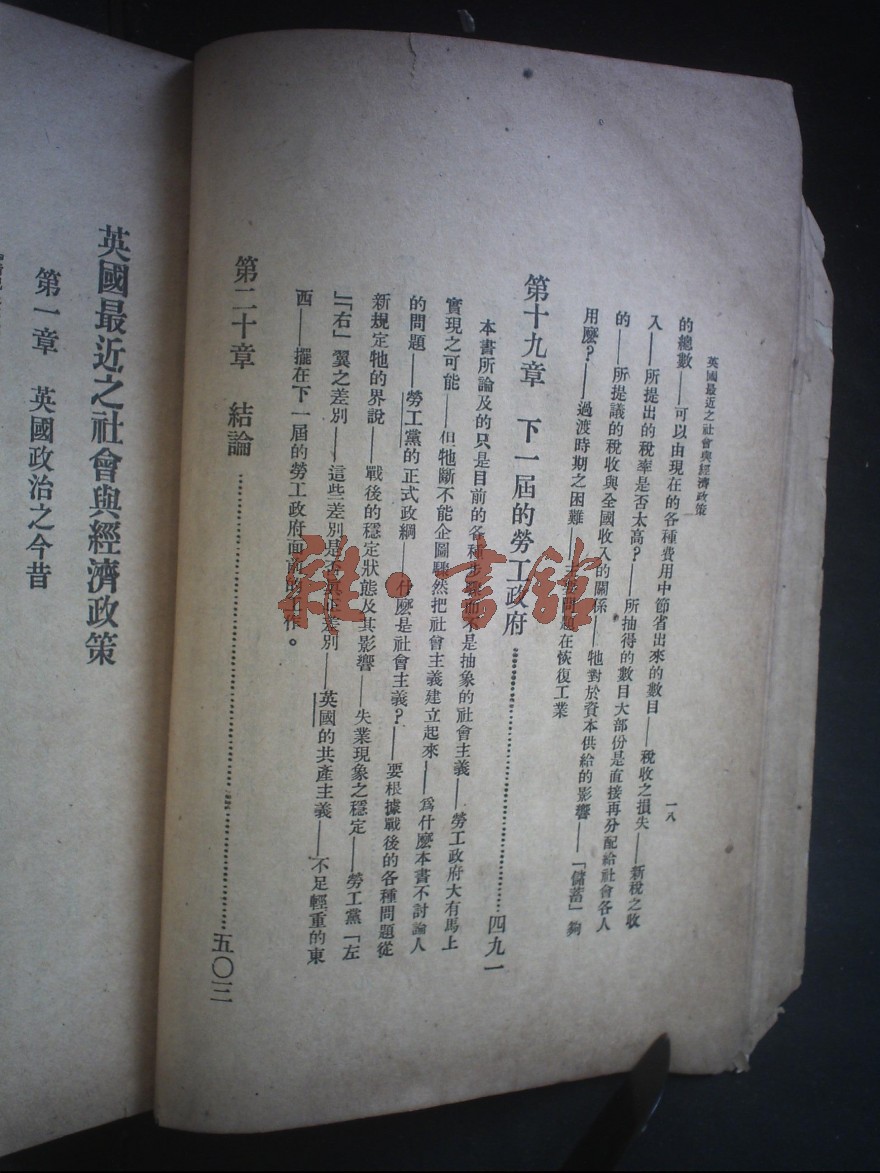 英國最近之社會與經濟政策
一八
的總數——可以由現在的各種費用中節省出來的數目——稅收之損失——新稅之收
入——所提出的稅率是否太高?——所抽得的數目大部份是直接再分配給社會各人
的——所提議的稅收與全國收入的關係——牠對於資本供給的影響——「儲蓄」夠
用麽?——過渡時期之困難——主要問題在恢復工業
第十九章 下一屆的勞工政府……四九一
本書所論及的只是目前的各種步驟而不是抽象的社會主義——勞工政府大有馬上
實現之可能——但牠斷不能企圖驟然把社會主義建立起來——爲什麽本書不討論人
的問題——勞工黨的正式政綱——什麽是社會主義?——要根據戰後的各種問題從
新規定牠的界說——戰後的穩定狀態及其影響——失業現象之穩定——勞工黨「左
」「右」翼之差別——這些差別是否眞正差別——英國的共產主義——不足輕重的東
西——擺在下一屆的勞工政府面前的工作。
第二十章 結論……五〇三
英國最近之社會與經濟政策
第一章 英國政治之今昔
雜·書館